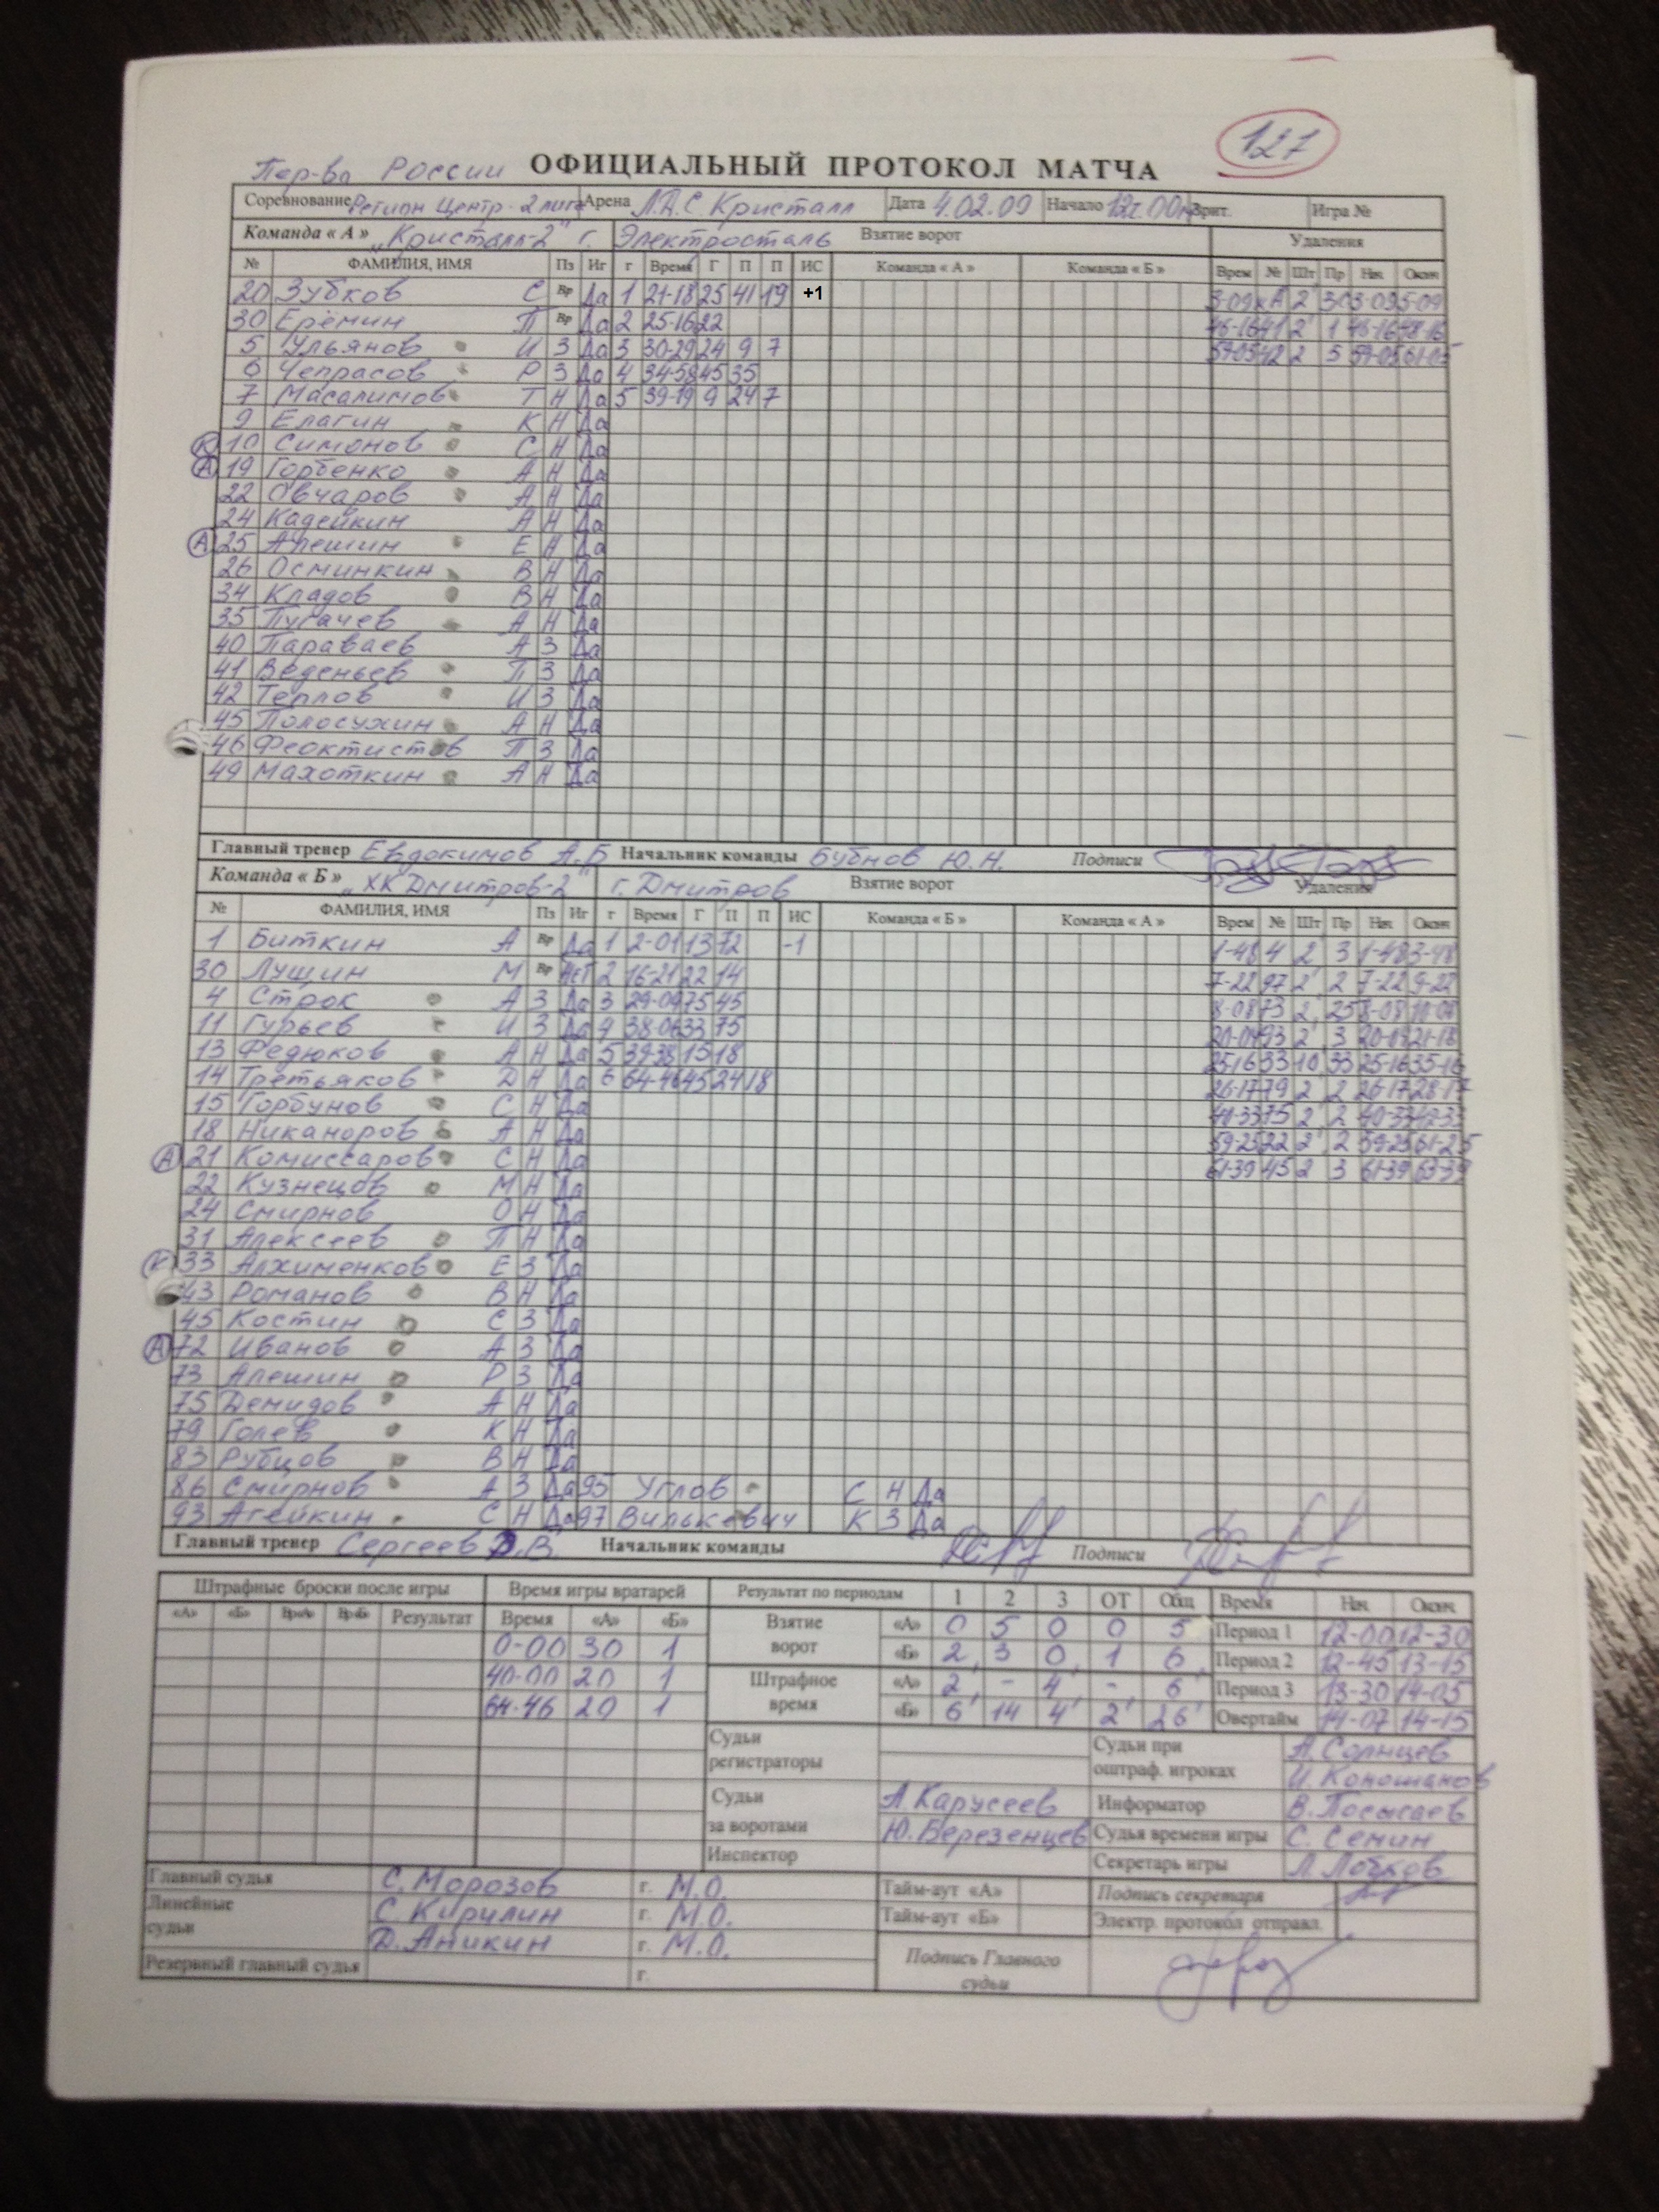 127
Пер-во России ОФИЦИАЛЬНЫЙ ПРОТОКОЛ МАТЧА
Соревнование Регион Центр-2 лига Арена Л.Д.С. Кристалл Дата 4.02.09 Начало 12ч.00м Зрит. Игра №
Команда « А » „Кристалл-2" г. Электросталь Взятие ворот Удаления
№ ФАМИЛИЯ, ИМЯ Пз Иг г Время Г П П ИС Команда « А » Команда « Б » Врем № Шт Пр Нач Оконч
20 Зубков С Вр Да 1 21-18 25 41 19 +1 3-09 кА 2' 30 3-09 5-09
30 Ерёмин П Вр Да 2 25-16 22 46-16 41 2' 1 46-16 48-16
5 Ульянов И З Да 3 30-29 24 9 7 59-05 42 2 5 59-05 61-05
6 Чепрасов Р З Да 4 34-58 45 35
7 Масалимов Т Н Да 5 39-19 9 24 7
9 Елагин К Н Да
К 10 Симонов С Н Да
А 19 Горбенко А Н Да
22 Овчаров А Н Да
24 Кадейкин А Н Да
А 25 Алешин Е Н Да
26 Осминкин В Н Да
34 Кладов В Н Да
35 Пугачев А Н Да
40 Параваев А З Да
41 Веденьев П З Да
42 Теплов И З Да
45 Полосухин А Н Да
46 Феоктистов П З Да
49 Махоткин А Н Да
Главный тренер Евдокимов А.Б Начальник команды Бубнов Ю.Н. Подписи
Команда « Б » „ХК Дмитров-2" г. Дмитров Взятие ворот Удаления
№ ФАМИЛИЯ, ИМЯ Пз Иг г Время Г П П ИС Команда « Б » Команда « А » Врем № Шт Пр Нач Оконч
1 Биткин А Вр Да 1 2-01 13 72 -1 1-48 4 2 3 1-48 3-48
30 Лущин М Вр Нет 2 16-21 22 14 7-22 97 2' 2 7-22 9-22
4 Строк А З Да 3 29-09 75 45 8-08 73 2' 25 8-08 10-08
11 Гурьев И З Да 4 38-06 33 75 20-04 93 2 3 20-04 21-18
13 Федюков А Н Да 5 39-38 15 18 25-16 33 10' 33 25-16 35-16
14 Третьяков Д Н Да 6 64-46 45 24 18 26-17 79 2' 2 26-17 28-17
15 Горбунов С Н Да 40-33 75 2' 2 40-33 42-33
18 Никаноров А Н Да 59-25 22 2' 2 59-25 61-25
А 21 Комиссаров С Н Да 61-39 45 2 3 61-39 63-39
22 Кузнецов М Н Да
24 Смирнов О Н Да
31 Алексеев П Н Да
К 33 Алхименков Е З Да
43 Романов В Н Да
45 Костин С З Да
А 72 Иванов А З Да
73 Алешин Р З Да
75 Демидов А Н Да
79 Голев К Н Да
83 Рубцов В Н Да
86 Смирнов А З Да 95 Углов С Н Да
93 Агейкин С Н Да 97 Вилькевич К З Да
Главный тренер Сергеев Д.В. Начальник команды Подписи
Штрафные броски после игры Время игры вратарей Результат по периодам 1 2 3 ОТ Общ Время Нач. Оконч.
«А» «Б» Вр«А» Вр«Б» Результат Время «А» «Б» Взятие ворот «А» 0 5 0 0 5 Период 1 12-00 12-30
0-00 30 1 «Б» 2 3 0 1 6 Период 2 12-45 13-15
40-00 20 1 Штрафное время «А» 2' - 4' - 6' Период 3 13-30 14-05
64-46 20 1 «Б» 6' 14 4' 2' 26' Овертайм 14-07 14-15
Судьи регистраторы Судьи при оштраф. игроках А. Солнцев
И. Коношанов
Судьи за воротами А. Карусеев Информатор В. Посысаев
Ю. Березенцев Судья времени игры С. Семин
Инспектор Секретарь игры Л. Лобков
Главный судья С. Морозов г. М.О. Тайм-аут «А» Подпись секретаря
Линейные судьи С. Кирилин г. М.О. Тайм-аут «Б» Электр. протокол отправл.
Д. Аникин г. М.О. Подпись Главного судьи
Резервный главный судья г.